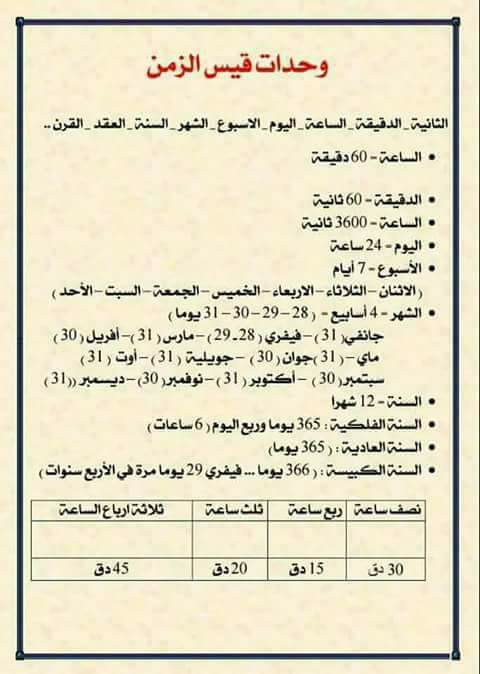 وحدات قيس الزمن
الثانية _ الدقيقة _ الساعة _ اليوم _ الاسبوع _ الشهر _ السنة _ العقد _ القرن ..
• الساعة = 60 دقيقة
• الدقيقة = 60 ثانية
• الساعة = 3600 ثانية
• اليوم = 24 ساعة
• الأسبوع = 7 أيام
( الاثنان – الثلاثاء – الاربعاء – الخميس – الجمعة – السبت – الأحد )
• الشهر = 4 أسابيع = ( 28 – 29 – 30 – 31 يوما )
جانفي (31 ) – فيفري ( 28 ـ 29 ) – مارس (31 ) – أفريل ( 30 )
ماي – (31 ) جوان ( 30 ) – جويلية ( 31 ) – أوت ( 31 )
سبتمبر ( 30 ) – أكتوبر ( 31 ) – نوفمبر (30 ) – ديسمبر ((31 )
• السنة = 12 شهرا
• السنة الفلكية : 365 يوما وربع اليوم ( 6 ساعات )
• السنة العادية : ( 365 يوما )
• السنة الكبيسة : ( 366 يوما ... فيفري 29 يوما مرة في الأربع سنوات )
نصف ساعة ربع ساعة ثلث ساعة ثلاثة ارباع الساعة
30 دق 15 دق 20 دق 45 دق